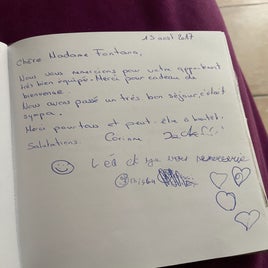 13 août 2017
Chère Madame Fontana,
Nous vous remercions pour votre appartement
très bien équipé. Merci pour cadeau de
bienvenue.
Nous avons passé un très bon séjour, c'était
sympa.
Merci pour tous et peut-être à bientôt.
Salutations. Corinne
Léa et vous remercie